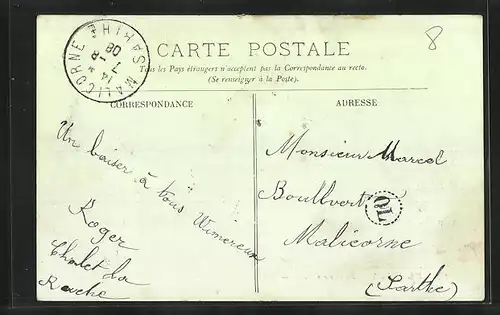 MALICORNE SARTHE
14 -8
7
08
8
CARTE POSTALE
Tous les Pays étrangers n'acceptent pas la Correspondance au recto.
(Se renseigner à la Poste).
CORRESPONDANCE
ADRESSE
Un baiser à tous Wimereux
Roger
Chalet la
Monsieur Marcel
Boullvert
QL
Malicorne
(Sarthe)